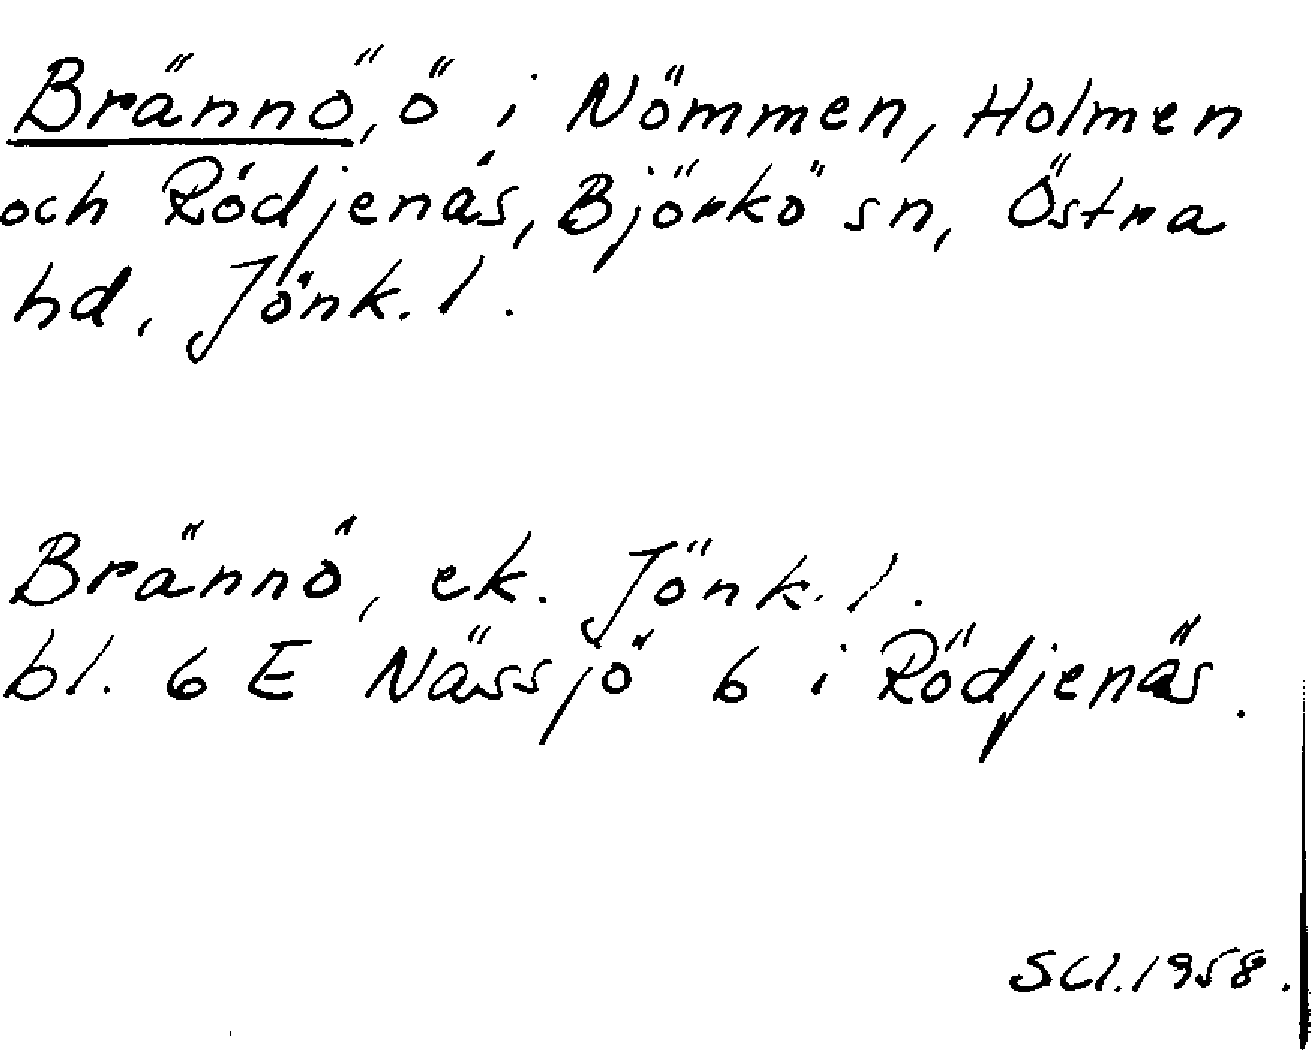 Brännö, ö i Nömmen, Holmen
och Rödjenäs, Björkö sn, Östra
hd, Jönk. l.
Brännö, ek. Jönk. l.
bl. 6 E Nässjö 6 i Rödjenäs.
SCl. 1958.